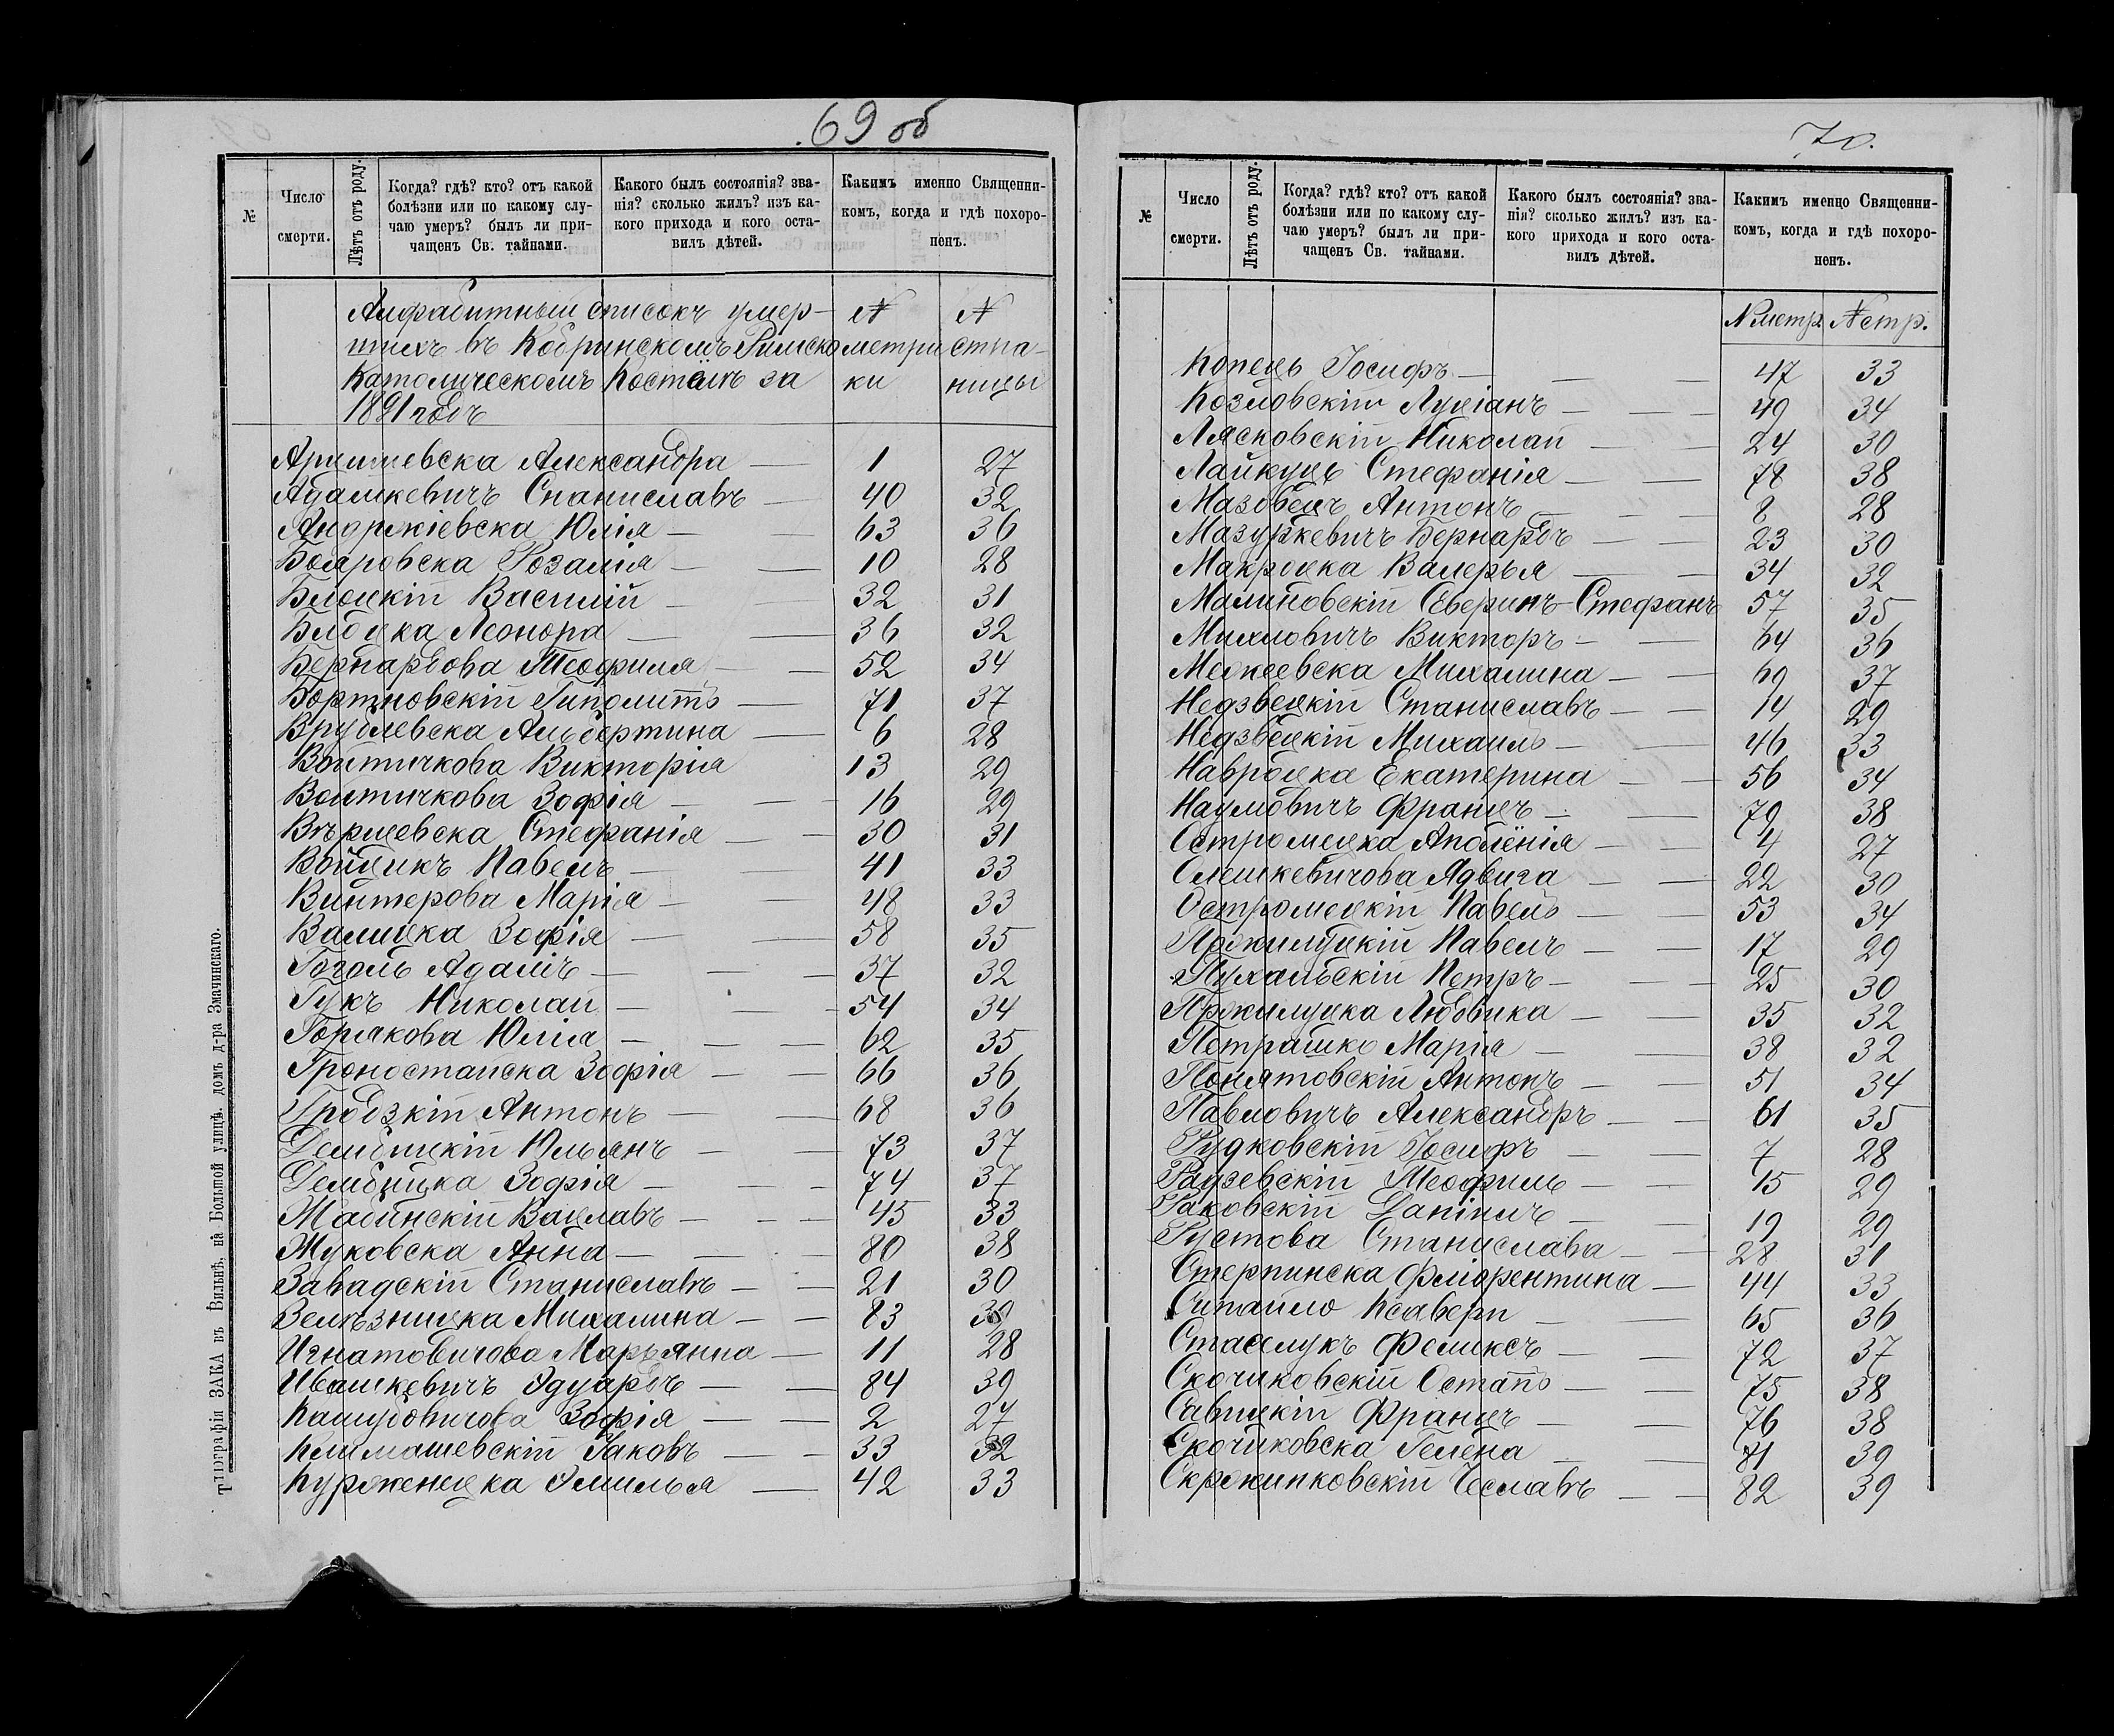 69 об
№
Число смерти.
Лѣтъ отъ роду.
Когда? гдѣ? кто? отъ какой
болѣзни или по какому слу-
чаю умеръ? былъ ли при-
чащенъ Св. тайнами.
Какого былъ состоянія? зва-
нія? сколько жилъ? изъ ка-
кого прихода и кого оста-
вилъ дѣтей.
Какимъ именно Священни-
комъ, когда и гдѣ похоро-
ненъ.
Алфабитный списокъ умер- № №
шихъ въ Кобринскомъ Римско метри стра-
Католическомъ Костёлѣ за ки ницы
1891 годъ
Арцишевска Александра — 1 27
Адамкевичъ Станиславъ — 40 32
Андржіевска Юлія — 63 36
Бояровска Розалія — 10 28
Блоцкій Василій — 32 31
Блоцка Леонора — 36 32
Бернардова Теофиля — 52 34
Бортновскій Гиполитъ — 71 37
Врублевска Альбертина — 6 28
Войтичкова Викторія 13 29
Войтичкова Зофія — 16 29
Вѣрцевска Стефанія — 30 31
Войцикъ Павелъ — 41 33
Винтерова Марія — 48 33
Валицка Зофія — 58 35
Гоголь Адамъ — 37 32
Гукъ Николай — 54 34
Горлакова Юлія — 62 35
Гроностайска Зофія — 66 36
Гродзкій Антонъ — 68 36
Дембицкій Юльянъ — 73 37
Дембицка Зофія — 74 37
Жабинскій Вацлавъ — 45 33
Жуковска Анна — 80 38
Завадскій Станиславъ — 21 30
Зелѣзницка Михалина — 83 39
Игнатовичова Марьянна — 11 28
Ивашкевичъ Эдуардъ — 84 39
Кашубовичова Зофія — 2 27
Климашевскій Іаковъ — 33 32
Курженецка Эмилья — 42 33
Типографія ЗАКА въ Вильнѣ, на Большой улицѣ. домъ д-ра Змачинскаго.
70.
№
Число смерти.
Лѣтъ отъ роду.
Когда? гдѣ? кто? отъ какой
болѣзни или по какому слу-
чаю умеръ? былъ ли при-
чащенъ Св. тайнами.
Какого былъ состоянія? зва-
нія? сколько жилъ? изъ ка-
кого прихода и кого оста-
вилъ дѣтей.
Какимъ именно Священни-
комъ, когда и гдѣ похоро-
ненъ.
№ метр. № стр.
Копець Іосифъ — 47 33
Козловскій Луціанъ — 49 34
Лясковскій Николай — 24 30
Лайкуць Стефанія — 78 38
Мазовецъ Антонъ — 8 28
Мазуркевичъ Бернардъ — 23 30
Макроцка Валерья — 34 32
Малиновскій Северинъ-Стефанъ 57 35
Михловичъ Викторъ — 64 36
Межеевска Михалина — 69 37
Недзвецкій Станиславъ — 14 29
Недзвецкій Михаилъ — 46 33
Навроцка Екатерина — 56 34
Наумовичъ Францъ — 79 38
Остромецка Аполёнія — 4 27
Олешкевичова Ядвига — 22 30
Остромецкій Павелъ — 53 34
Пржилуцкій Павелъ — 17 29
Пухальскій Петръ — 25 30
Пржилуцка Людвика — 35 32
Петрашко Марія — 38 32
Понятовскій Антонъ — 51 34
Павловичъ Александръ — 61 35
Рудковскій Іосифъ — 7 28
Радзевскій Теофиль — 15 29
Раковскій Даніилъ — 19 29
Рустова Станислава — 28 31
Стерпинска Фліорентина — 44 33
Сипайло Ксаверій — 65 36
Стаслукъ Феликсъ — 72 37
Скочиковскій Остапъ — 75 38
Савицкій Францъ — 76 38
Скочиковска Гелена — 81 39
Скржипковскій Чеславъ — 82 39